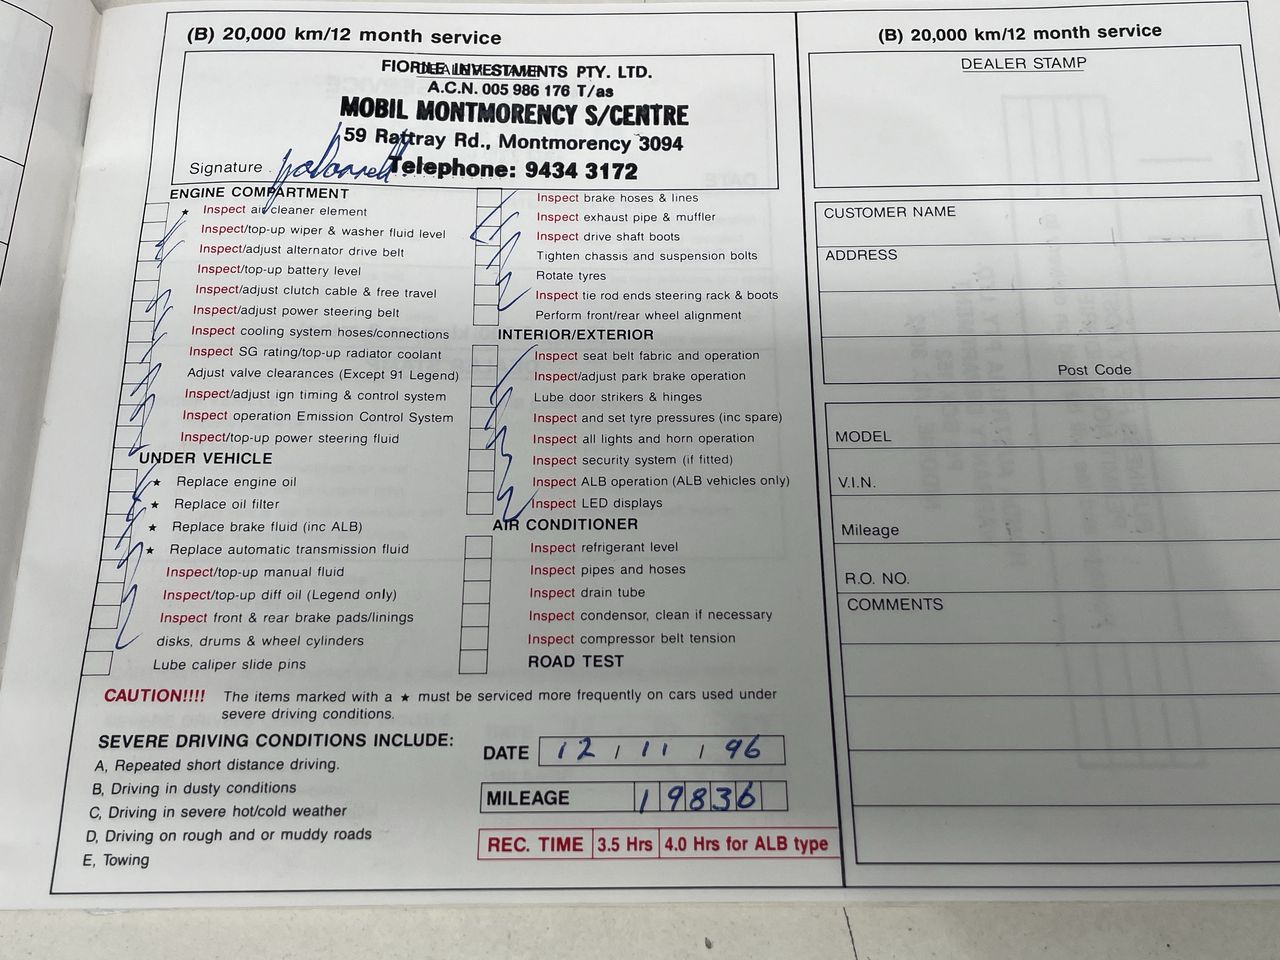 (B) 20,000 km/12 month service
DEALER STAMP
FIORILE INVESTMENTS PTY. LTD.
A.C.N. 005 986 176 T/as
MOBIL MONTMORENCY S/CENTRE
59 Rattray Rd., Montmorency 3094
Telephone: 9434 3172
Signature
ENGINE COMPARTMENT
★ Inspect air cleaner element
Inspect/top-up wiper & washer fluid level
Inspect/adjust alternator drive belt
Inspect/top-up battery level
Inspect/adjust clutch cable & free travel
Inspect/adjust power steering belt
Inspect cooling system hoses/connections
Inspect SG rating/top-up radiator coolant
Adjust valve clearances (Except 91 Legend)
Inspect/adjust ign timing & control system
Inspect operation Emission Control System
Inspect/top-up power steering fluid
UNDER VEHICLE
★ Replace engine oil
★ Replace oil filter
★ Replace brake fluid (inc ALB)
★ Replace automatic transmission fluid
Inspect/top-up manual fluid
Inspect/top-up diff oil (Legend only)
Inspect front & rear brake pads/linings
disks, drums & wheel cylinders
Lube caliper slide pins
Inspect brake hoses & lines
Inspect exhaust pipe & muffler
Inspect drive shaft boots
Tighten chassis and suspension bolts
Rotate tyres
Inspect tie rod ends steering rack & boots
Perform front/rear wheel alignment
INTERIOR/EXTERIOR
Inspect seat belt fabric and operation
Inspect/adjust park brake operation
Lube door strikers & hinges
Inspect and set tyre pressures (inc spare)
Inspect all lights and horn operation
Inspect security system (if fitted)
Inspect ALB operation (ALB vehicles only)
Inspect LED displays
AIR CONDITIONER
Inspect refrigerant level
Inspect pipes and hoses
Inspect drain tube
Inspect condensor, clean if necessary
Inspect compressor belt tension
ROAD TEST
CAUTION!!!! The items marked with a ★ must be serviced more frequently on cars used under
severe driving conditions.
SEVERE DRIVING CONDITIONS INCLUDE:
A, Repeated short distance driving.
B, Driving in dusty conditions
C, Driving in severe hot/cold weather
D, Driving on rough and or muddy roads
E, Towing
DATE 12 / 11 / 96
MILEAGE 19836
REC. TIME 3.5 Hrs 4.0 Hrs for ALB type
(B) 20,000 km/12 month service
DEALER STAMP
CUSTOMER NAME
ADDRESS
Post Code
MODEL
V.I.N.
Mileage
R.O. NO.
COMMENTS